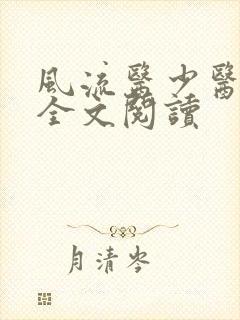 風流醫少醫
全文閱讀
月清岑